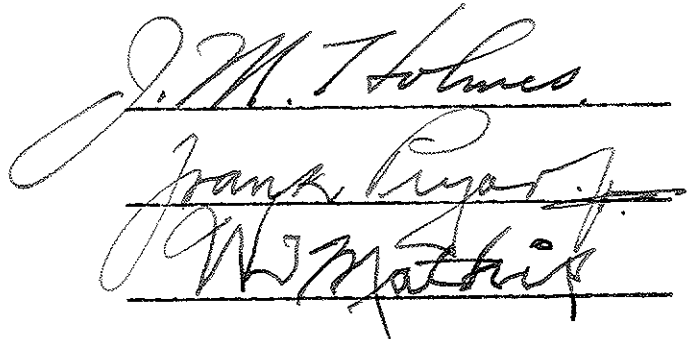 J. M. Holmes.
Frank Pryor Jr.
W J Mathis